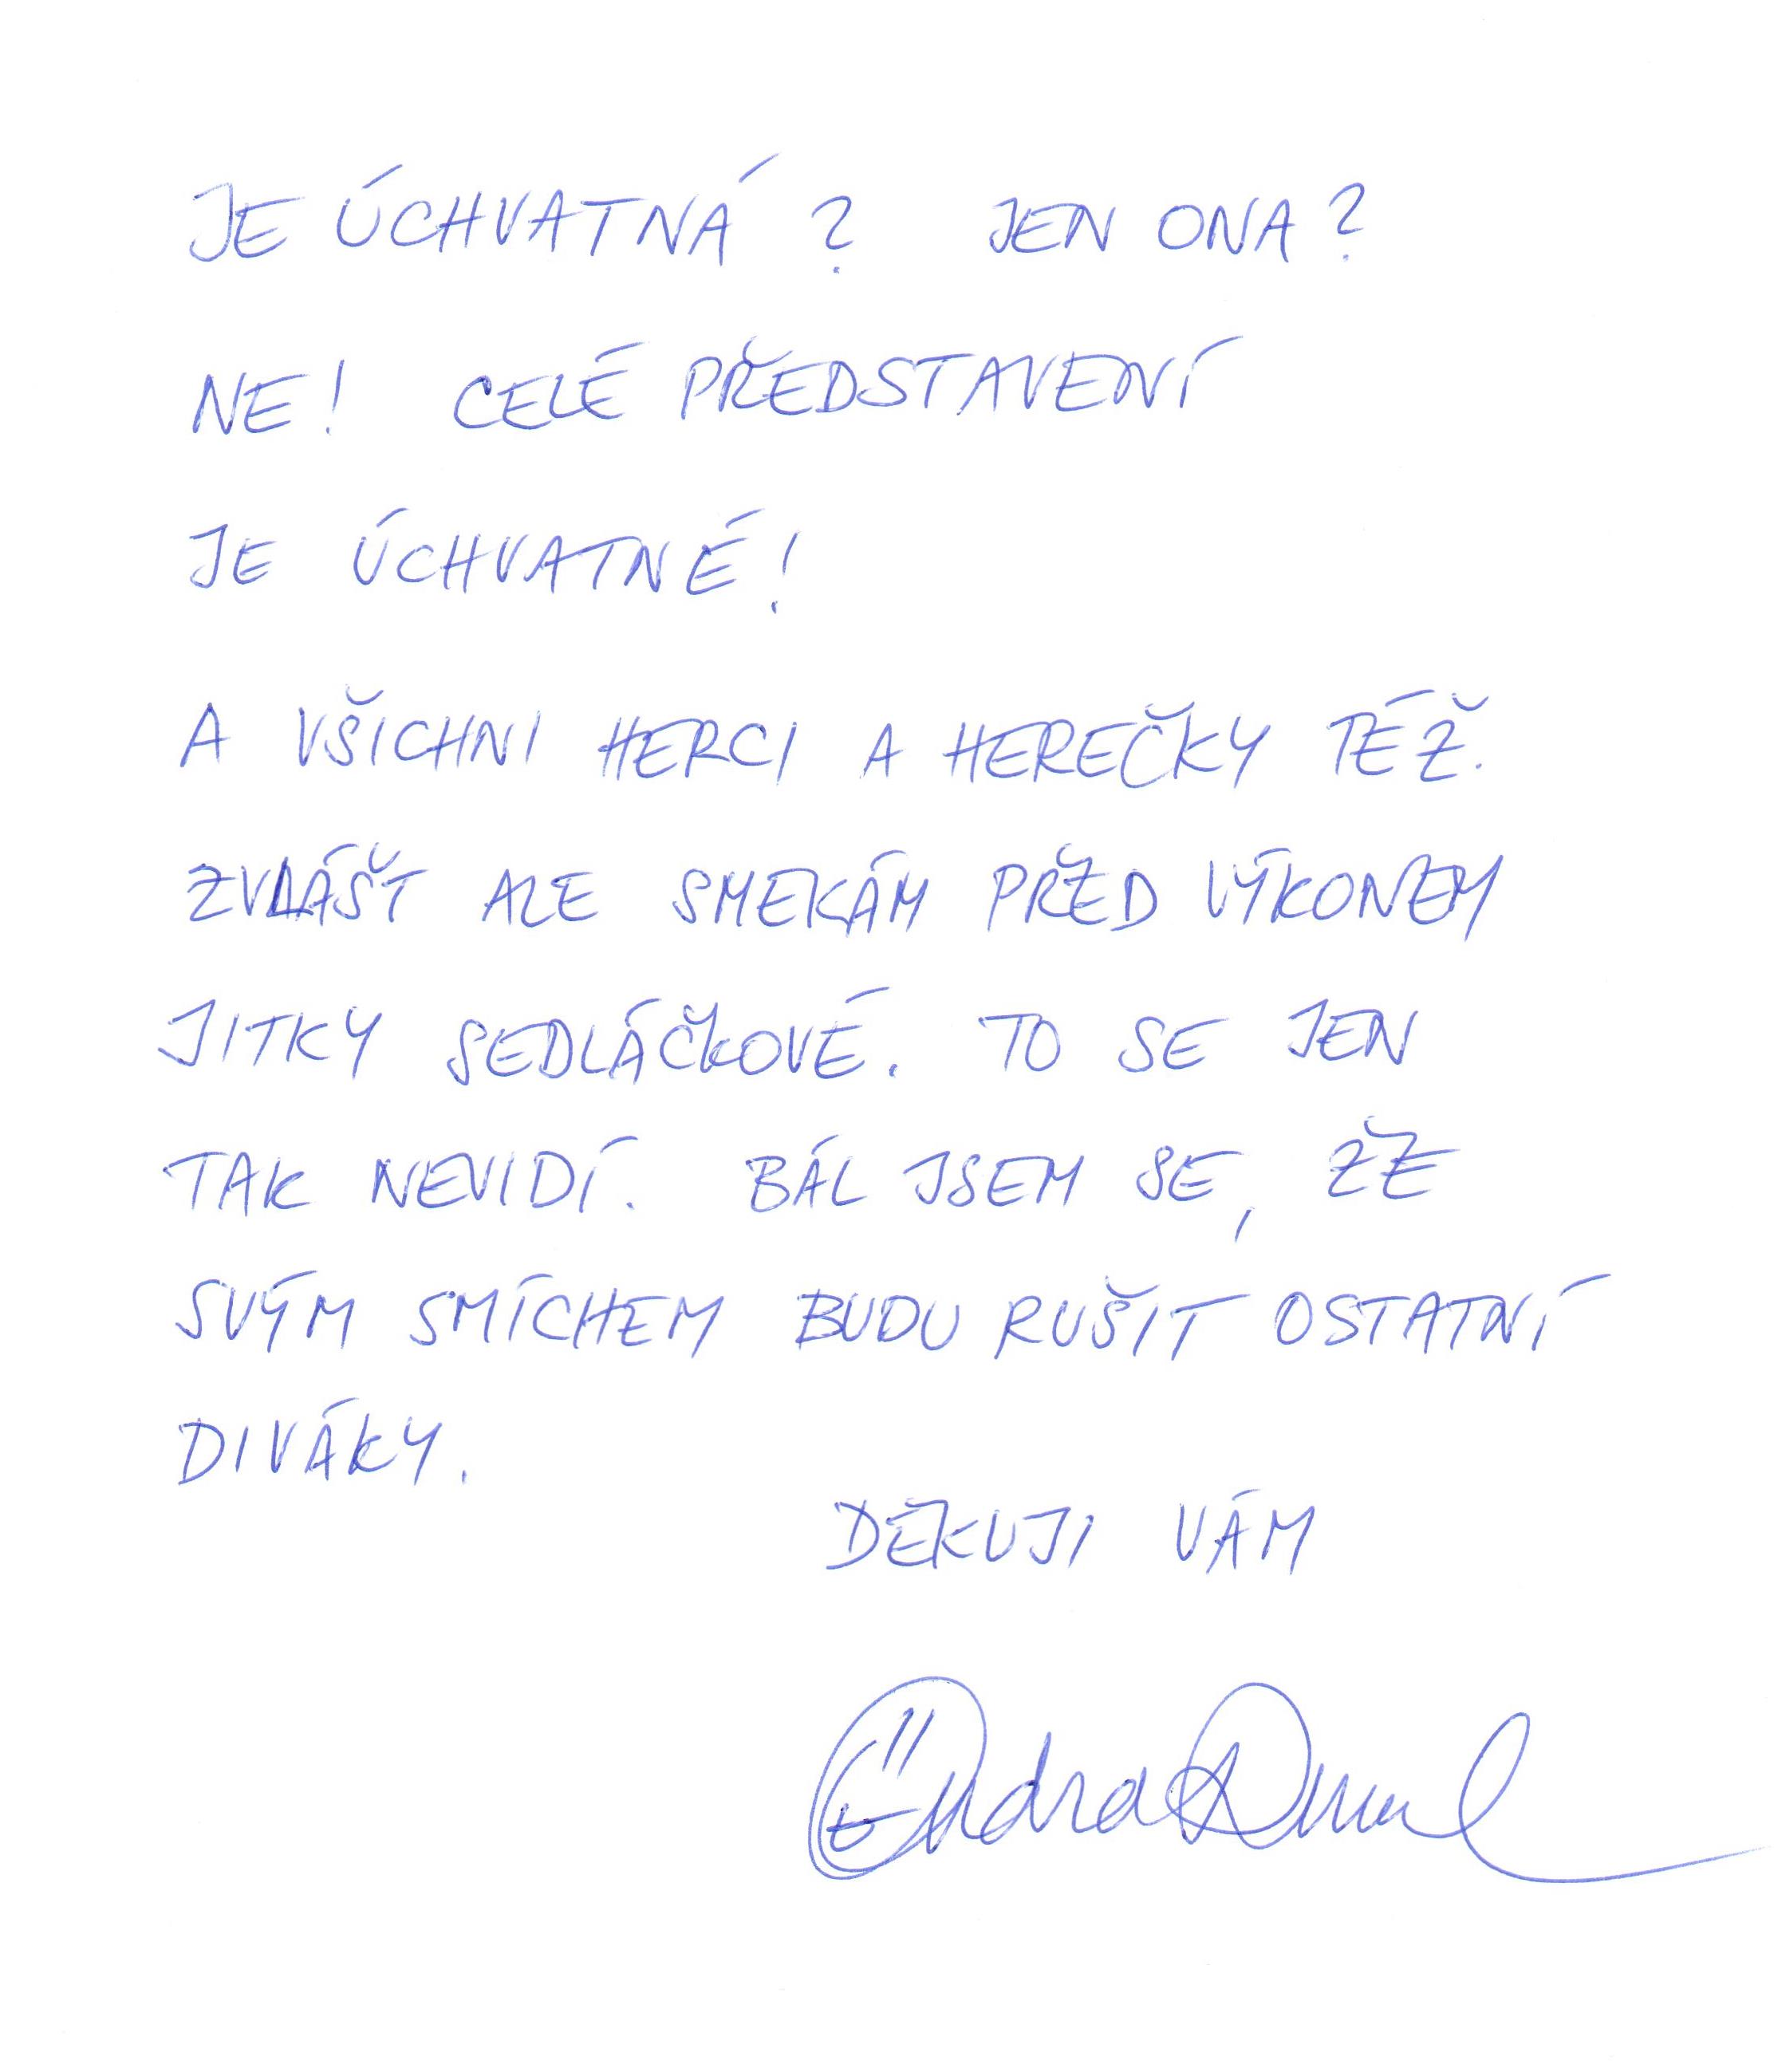 JE ÚCHVATNÁ ? JEN ONA?
NE! CELÉ PŘEDSTAVENÍ
JE ÚCHVATNÉ!
A VŠICHNI HERCI A HEREČKY TÉŽ.
ZVLÁŠT ALE SMEKÁM PŘED VÝKONEM
JITKY SEDLÁČKOVÉ. TO SE JEN
TAK NEVIDÍ. BÁL JSEM SE, ŽE
SVÝM SMÍCHEM BUDU RUŠIT OSTATNÍ
DIVÁKY.
DĚKUJI VÁM